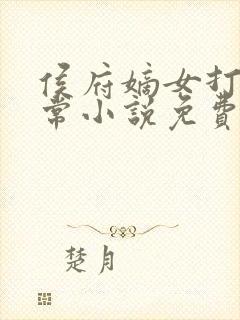 侯府嫡女打
常小説免費
楚月